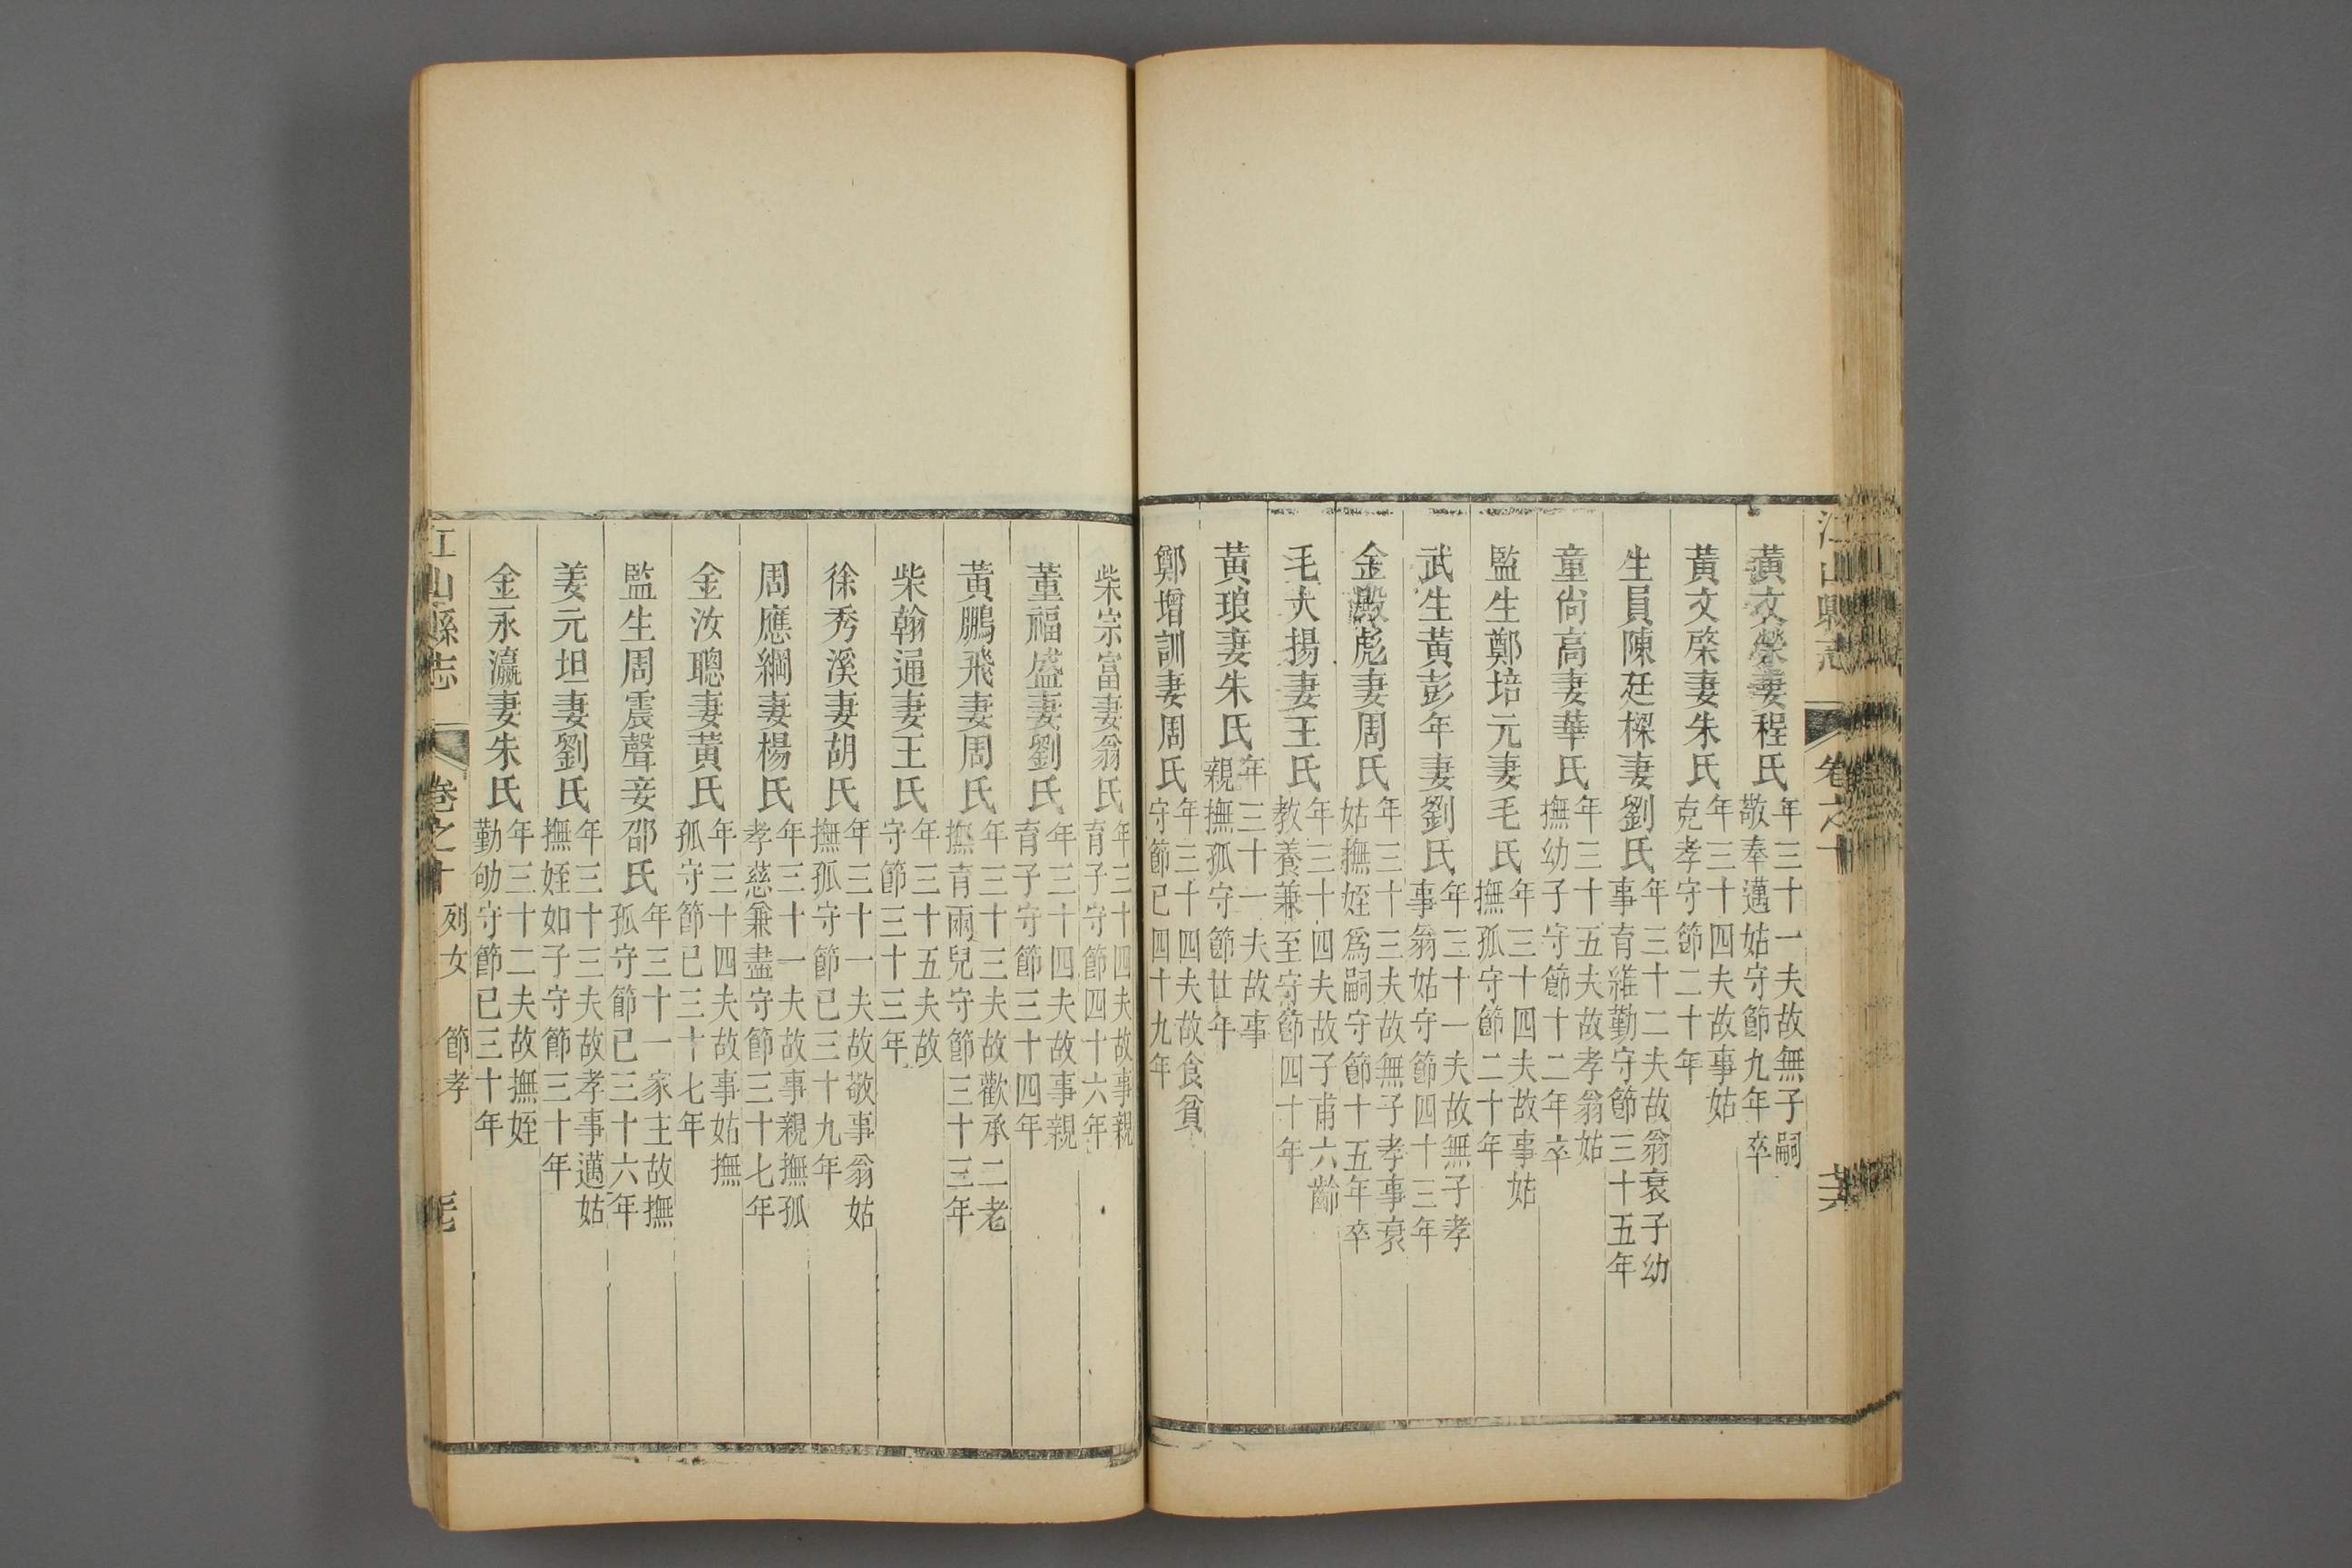 江山縣志 卷之十
黃文榮妻程氏 年三十一夫故無子嗣敬奉邁姑守節九年卒
黃文棨妻朱氏 年三十四夫故事姑克孝守節二十年
生員陳廷樑妻劉氏 年三十二夫故翁衰子幼事育維勤守節三十五年
童尙高妻華氏 年三十五夫故孝翁姑撫幼子守節十二年卒
監生鄭培元妻毛氏 年三十四夫故事姑撫孤守節二十年
武生黃彭年妻劉氏 年三十一夫故無子孝事翁姑守節四十三年
金澱彪妻周氏 年三十三夫故無子孝事衰姑撫姪爲嗣守節十五年卒
毛大揚妻王氏 年三十四夫故子甫六齡教養兼至守節四十年
黃琅妻朱氏 年三十一夫故事親撫孤守節廿年
鄭增訓妻周氏 年三十四夫故食貧守節已四十九年
柴宗富妻翁氏 年三十四夫故事親育子守節四十六年
董福盛妻劉氏 年三十四夫故事親育子守節三十四年
黃鵬飛妻周氏 年三十三夫故歡承二老撫育兩兒守節三十三年
柴翰通妻王氏 年三十五夫故守節三十三年
徐秀溪妻胡氏 年三十一夫故敬事翁姑撫孤守節已三十九年
周應綱妻楊氏 年三十一夫故事親撫孤孝慈兼盡守節三十七年
金汝聰妻黃氏 年三十四夫故事姑撫孤守節已三十七年
監生周震聲妾邵氏 年三十一家主故撫孤守節已三十六年
姜元坦妻劉氏 年三十三夫故孝事邁姑撫姪如子守節三十年
金永瀛妻朱氏 年三十二夫故撫姪勤劬守節已三十年
江山縣志 卷之十 列女 節孝